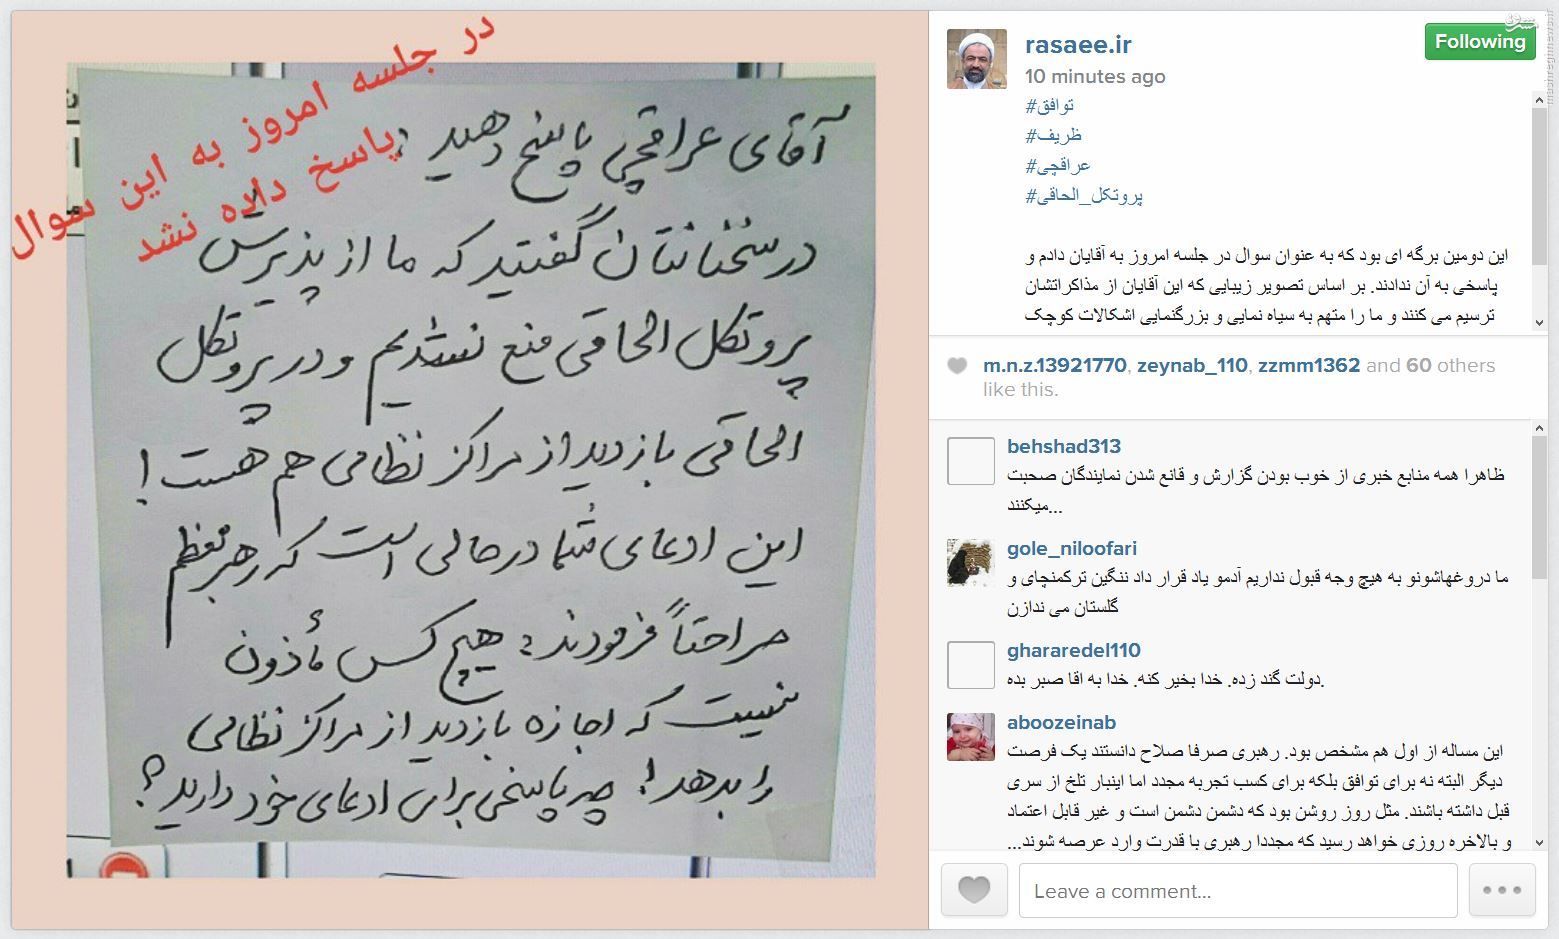 در جلسه امروز به این سوال
پاسخ داده نشد
آقای عراقچی پاسخ دهید :
در سخنانتان گفتید که ما از پذیرش
پروتکل الحاقی منع نشدیم و در پروتکل
الحاقی بازدید از مراکز نظامی هم هست !
این ادعای شما در حالی است که رهبر معظم
صراحتاً فرمودند : هیچ کس مأذون
نیست که اجازه بازدید از مراکز نظامی
را بدهد ! چه پاسخی برای ادعای خود دارید ؟
rasaee.ir
Following
10 minutes ago
#توافق
#ظریف
#عراقچی
#پروتکل_الحاقی
این دومین برگه ای بود که به عنوان سوال در جلسه امروز به آقایان دادم و
پاسخی به آن ندادند. بر اساس تصویر زیبایی که این آقایان از مذاکراتشان
ترسیم می کنند و ما را متهم به سیاه نمایی و بزرگنمایی اشکالات کوچک
m.n.z.13921770, zeynab_110, zzmm1362 and 60 others
like this.
behshad313
ظاهرا همه منابع خبری از خوب بودن گزارش و قانع شدن نمایندگان صحبت
میکنند...
gole_niloofari
ما دروغهاشونو به هیچ وجه قبول نداریم آدمو یاد قرار داد ننگین ترکمنچای و
گلستان می ندازن
ghararedel110
دولت گند زده. خدا بخیر کنه. خدا به اقا صبر بده.
aboozeinab
این مساله از اول هم مشخص بود. رهبری صرفا صلاح دانستند یک فرصت
دیگر البته نه برای توافق بلکه برای کسب تجربه مجدد اما اینبار تلخ از سری
قبل داشته باشند. مثل روز روشن بود که دشمن دشمن است و غیر قابل اعتماد
و بالاخره روزی خواهد رسید که مجددا رهبری با قدرت وارد عرصه شوند...
Leave a comment...
mashreghnews.ir